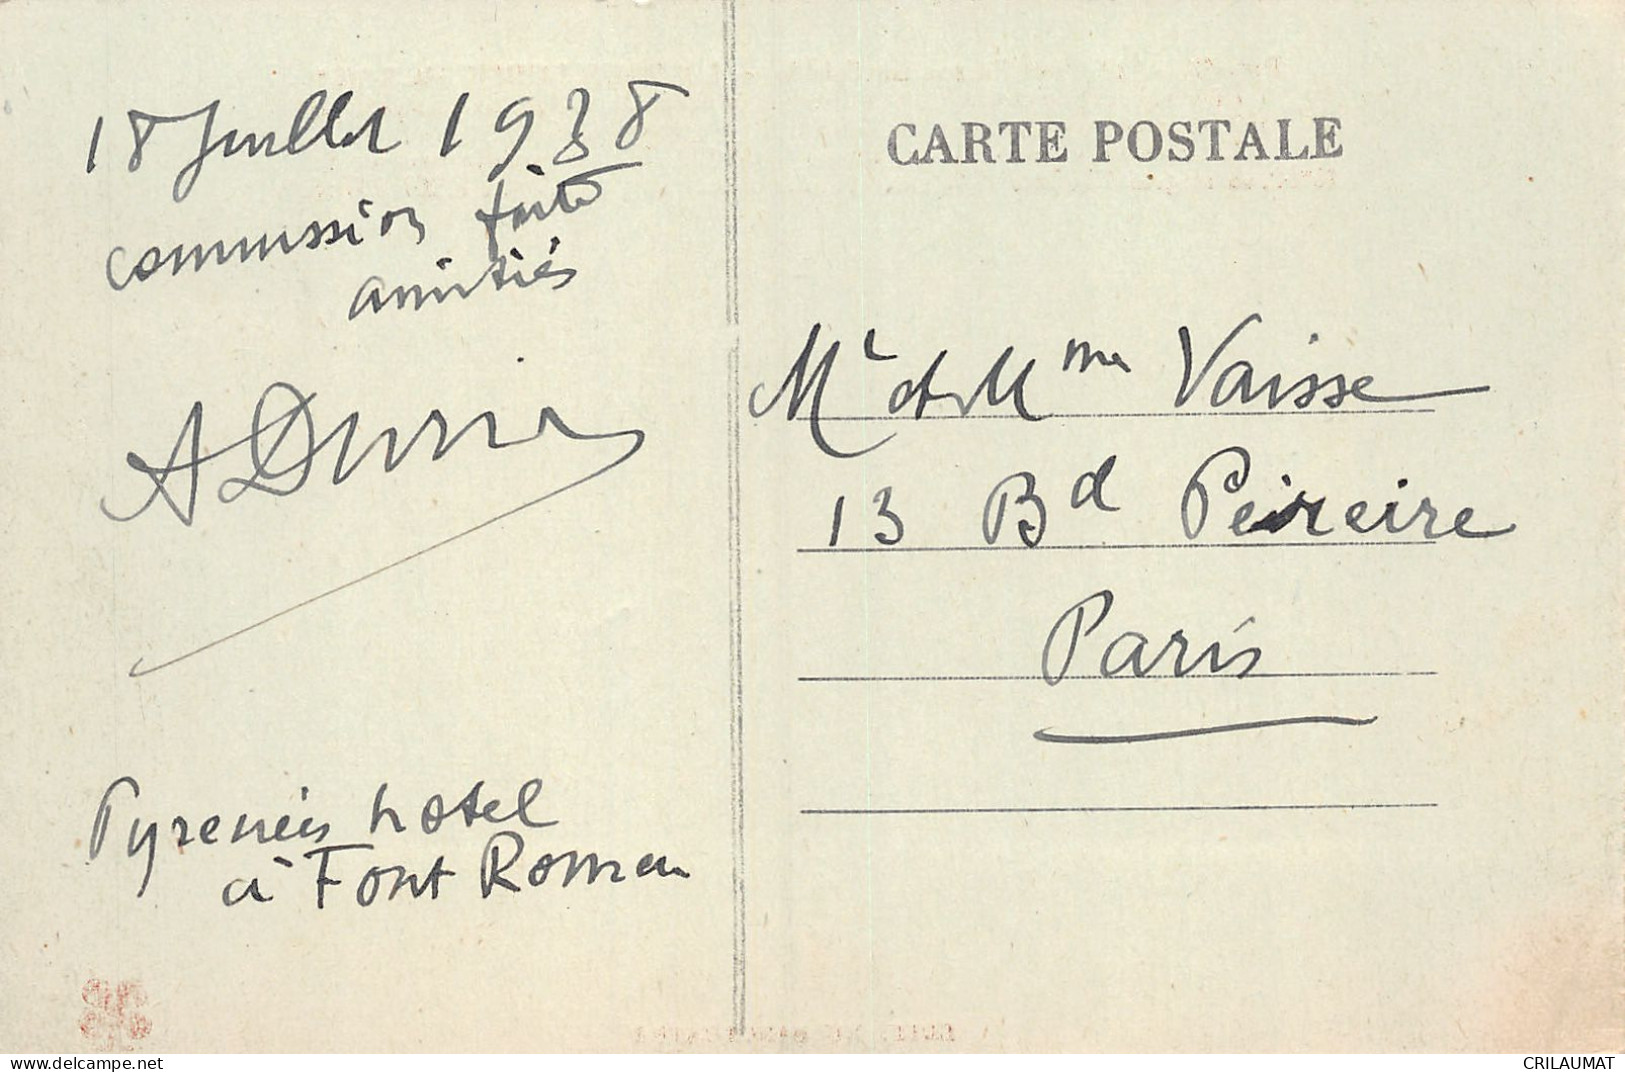 CARTE POSTALE
18 Juillet 1938
commission faite
amitiés
Mr et Mme Vaisse
13 Bd Peireire
Paris
Pyrenées hotel
à Font Romeu
delcampe.net
CRILAUMAT